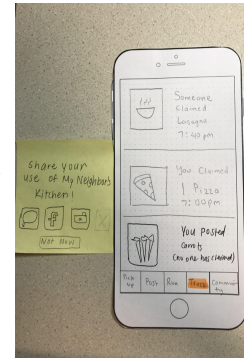 Share your
use of My Neighbor's
Kitchen!
f
Not Now
Someone
Claimed
Lasagna
7:40 pm
You Claimed
1 Pizza
7:00pm
You Posted
Carrots
(no one has claimed)
Pick
up
Post
Run
Track
Commun-
ity